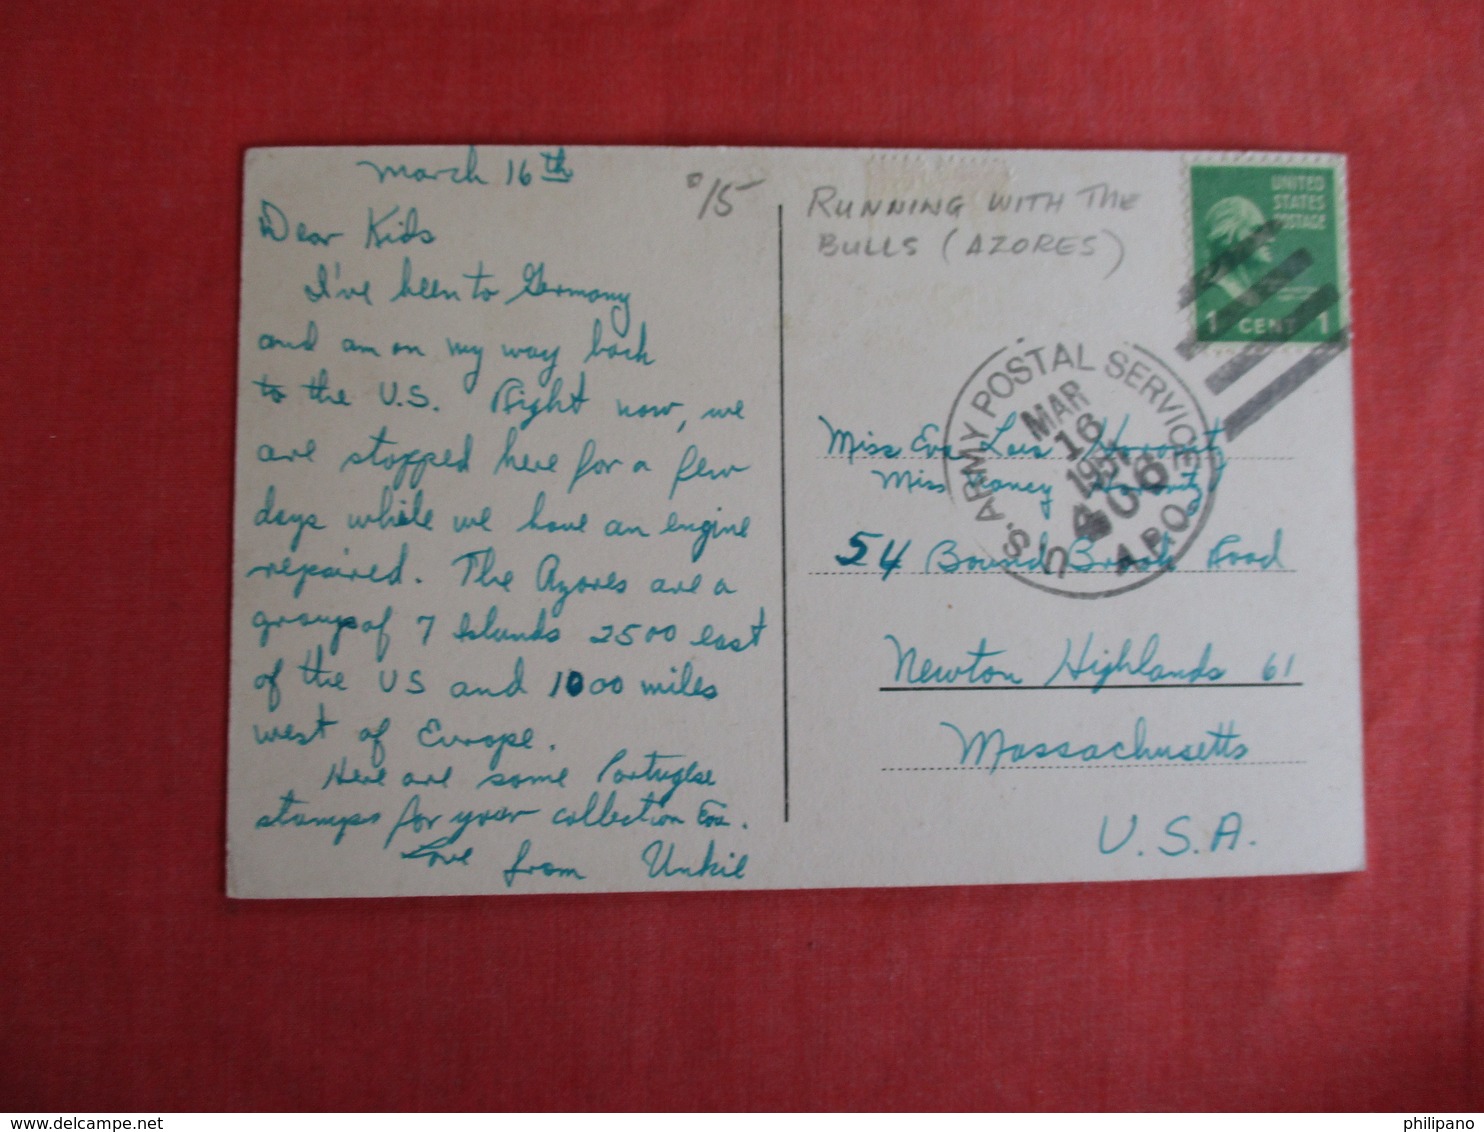 March 16th
Dear Kids
I've been to Germany
and am on my way back
to the U.S. Right now, we
are stopped here for a few
days while we have an engine
repaired. The Azores are a
group of 7 Islands 2500 east
of the US and 1000 miles
west of Europe.
Here are some Portugese
stamps for your collection Eva.
Love from Unkil
0/15
RUNNING WITH THE
BULLS (AZORES)
UNITED
STATES
POSTAGE
1 CENT 1
U.S. ARMY POSTAL SERVICE
MAR
16
1951
406
A.P.O.
Miss Eva Lois
Miss Nancy
54 Bound Brook Road
Newton Highlands 61
Massachusetts
U.S.A.
philipano